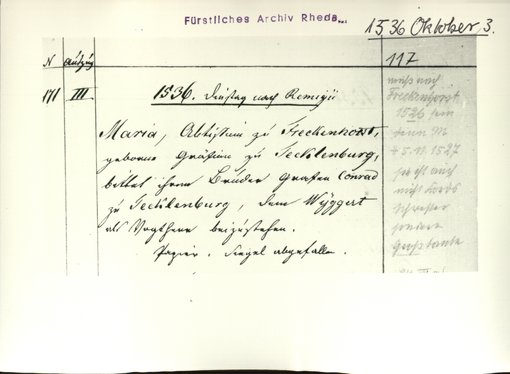 Fürstliches Archiv Rheda
1536 Oktober, 3.
N Auszug 117
171 III 1536. Dinstag nach Remigii
Maria, Abtissin zu Freckenhorst,
geborne Gräfin zu Tecklenburg,
bittet ihren Bruder Grafen Conrad
zu Tecklenburg, dem Wÿggert
als Vogtherr beizustehen.
Papier. Siegel abgefallen.
muß nach
Freckenhorst
1526 sein
denn M
+ 5.11.1527
sie ist auch
nicht
Schwester
sondern
Großtante